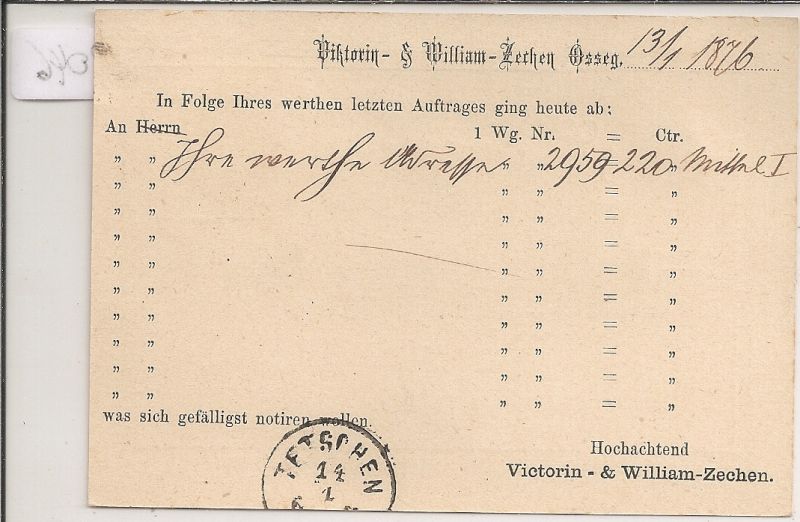 Viktorin- & William-Zechen Osseg, 13/1 1876
In Folge Ihres werthen letzten Auftrages ging heute ab:
An Herrn 1 Wg. Nr. = Ctr.
„ „ Ihre werthe Adresse „ „ 2959 = 220 „ Mittel I
„ „ „ „ = „
„ „ „ „ = „
„ „ „ „ = „
„ „ „ „ = „
„ „ „ „ = „
„ „ „ „ = „
„ „ „ „ = „
„ „ „ „ = „
„ „ „ „ = „
was sich gefälligst notiren wollen.
Hochachtend
Victorin - & William-Zechen.
TETSCHEN
14
1